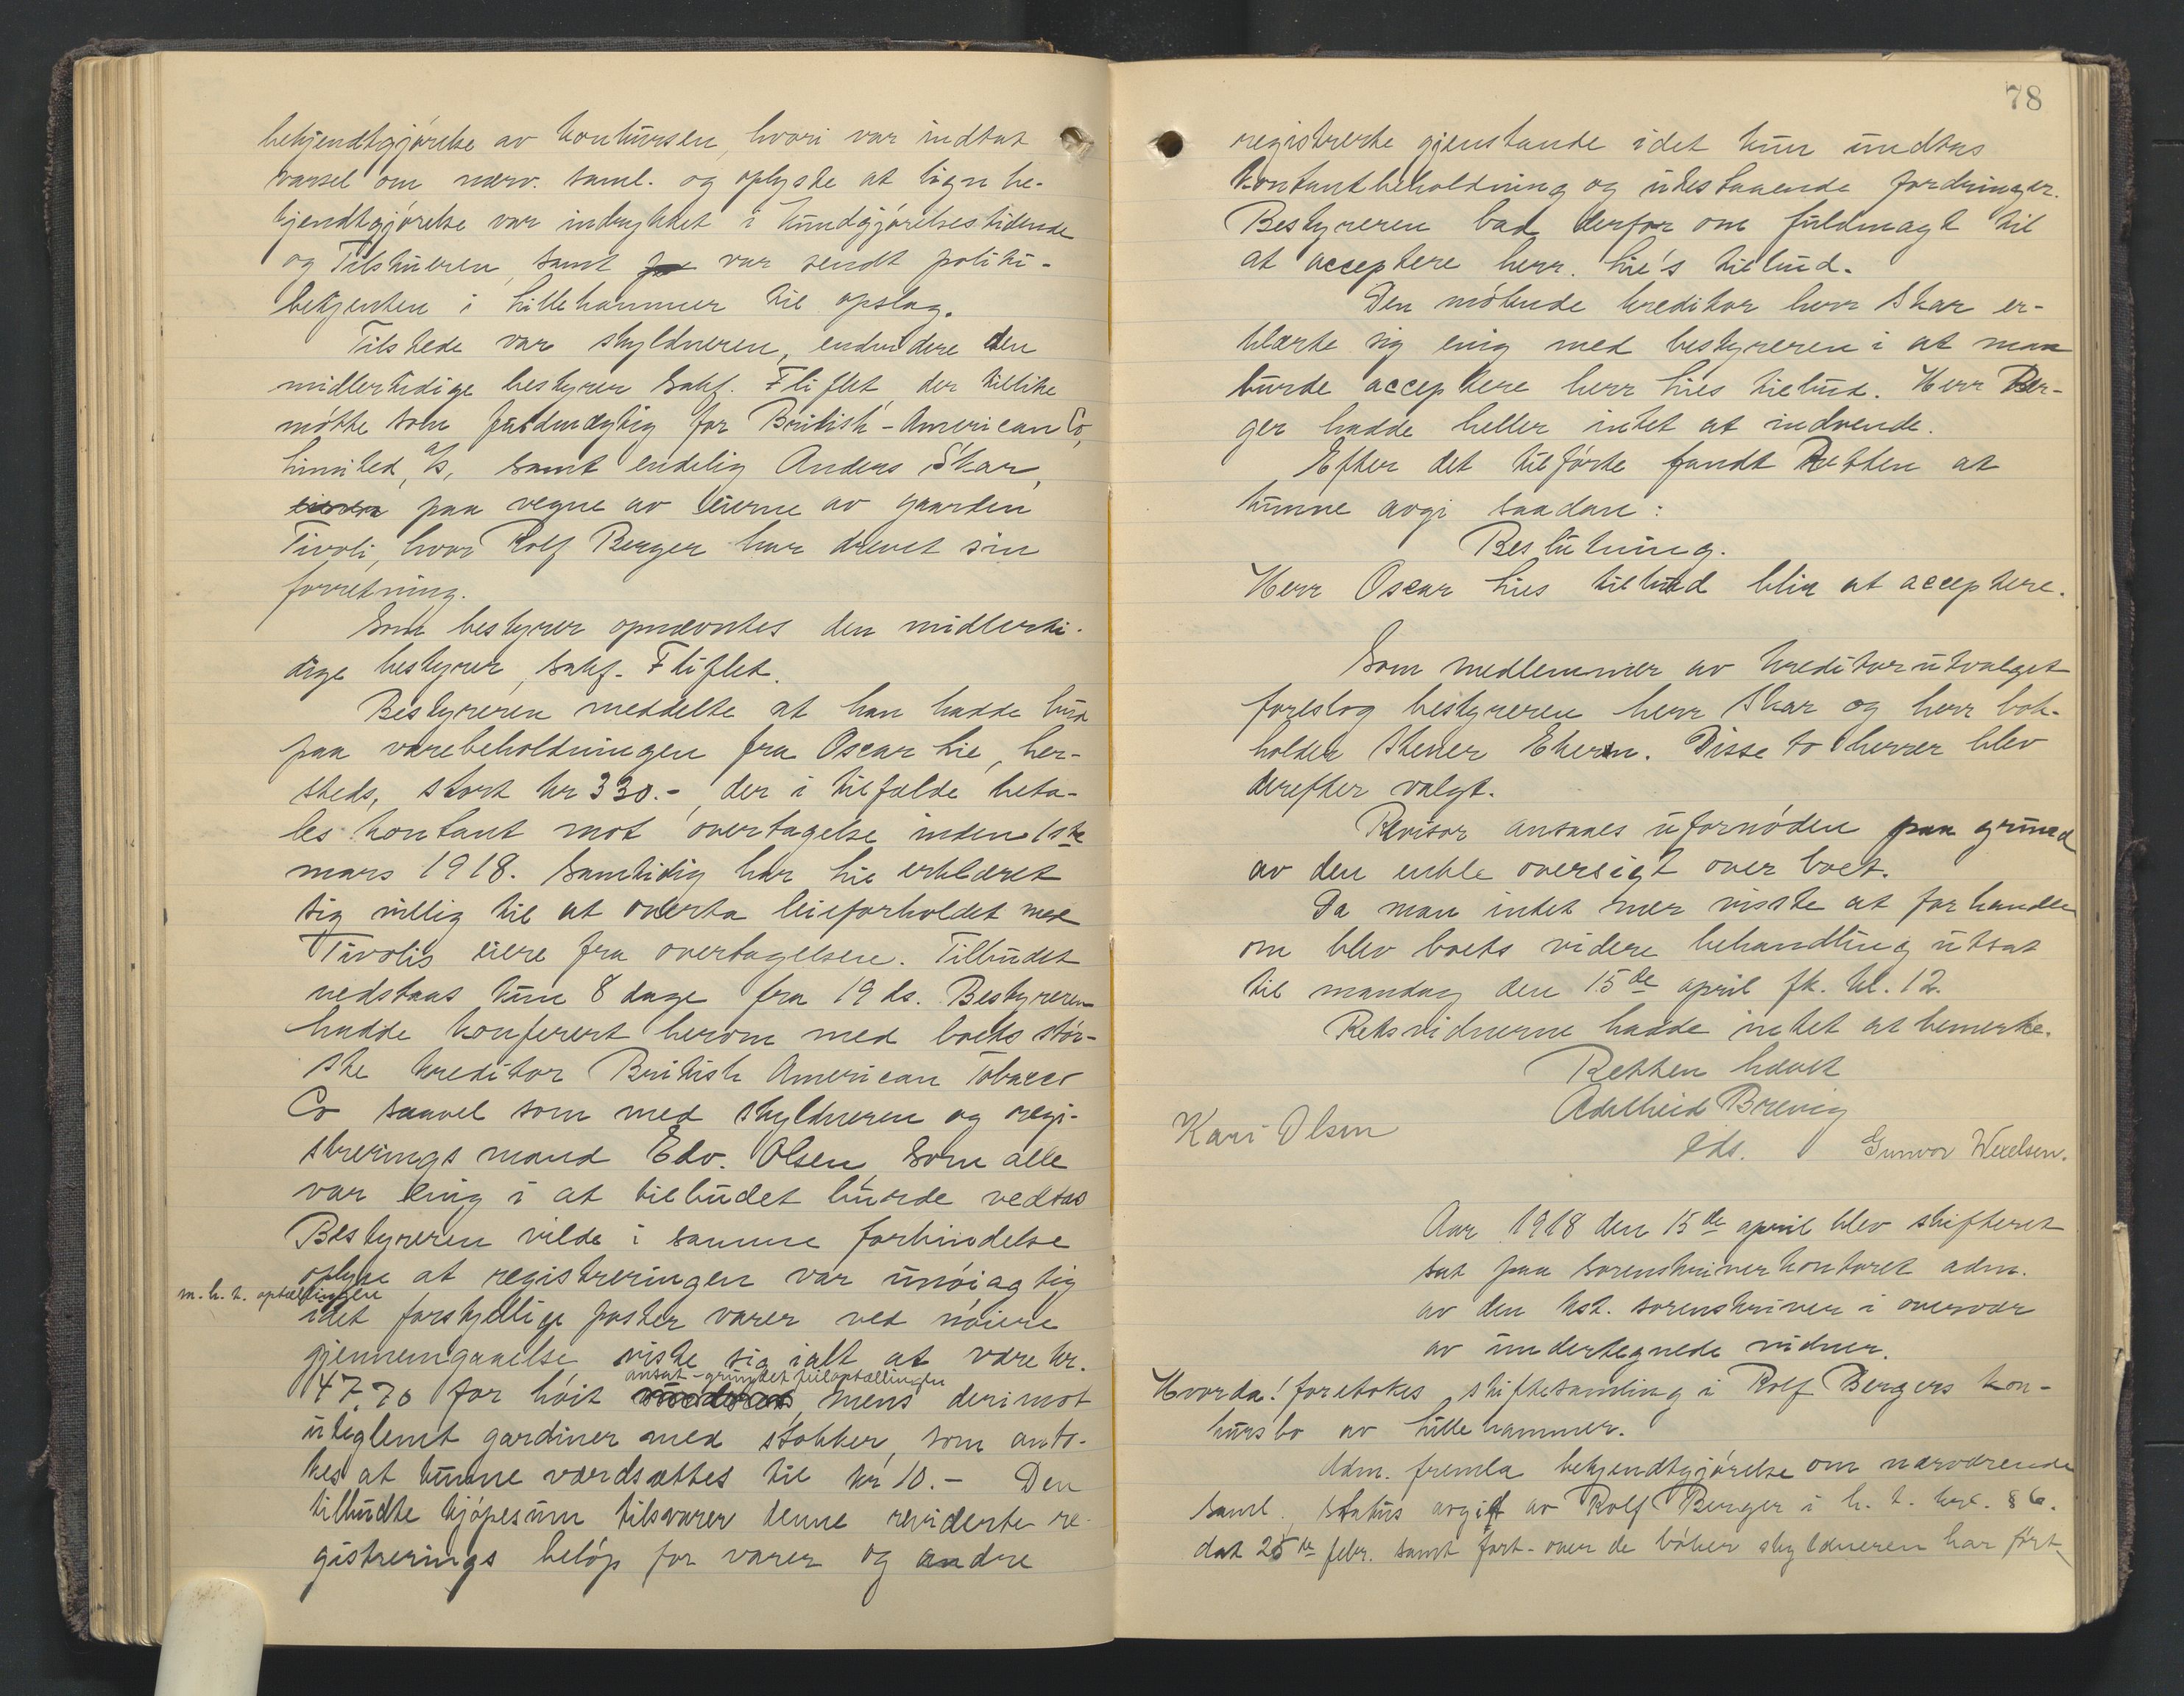 bekjendtgjørelse av konkursen, hvori var indtat
varsel om nærv. saml. og oplyste at lign be-
kjendtgjørelse var indrykket i Kundgjørelsestidende
og Tilskueren, samt var sendt politi-
betjenten i Lillehammer til opslag.
Tilstede var skyldneren, endvidere den
midlertidige bestyrer Sakf. Fliflet, der tillike
møtte som fuldmægtig for British-American Co,
Limited, A/S, samt endelig Anders Skar,
paa vegne av eierne av gaarden
Tivoli, hvor Rolf Berger har drevet sin
forretning.
Som bestyrer opnævntes den midlerti-
dige bestyrer, sakf. Fliflet.
Bestyreren meddelte at han hadde bud
paa varebeholdningen fra Oscar Lie, her-
steds, stort kr 330.-, der i tilfælde beta-
les kontant mot overtagelse inden 1ste
mars 1918. Samtidig har Lie erklæret
sig villig til at overta leieforholdet med
Tivolis eiere fra overtagelsen. Tilbudet
vedstaas kun 8 dage fra 19 ds. Bestyreren
hadde konferert herom med boets stør-
ste kreditor British American Tobacco
Co saavel som med skyldneren og regi-
streringsmand Edv. Olsen, som alle
var enig i at tilbudet burde vedtas
Bestyreren vilde i samme forbindelse
oplyse at registreringen var unøiagtig
m.h.t. optællingen
idet forskjellige poster varer ved nøiere
gjennemgaaelse viste sig ialt at være kr.
ansat - grundet feiloptællingen
47.70 for høit mens derimot
uteglemt gardiner med stokker, som anto-
kes at kunne værdsættes til kr 10.- Den
tilbudte kjøpesum tilsvarer denne reviderte re-
gistrerings beløp for varer og andre
78
registrerte gjenstande idet kun undtas
kontantbeholdning og utestaaende fordringer.
Bestyreren bad derfor om fuldmagt til
at acceptere herr. Lie's tilbud.
Den møtende kreditor herr Skar er-
klærte sig enig med bestyreren i at man
burde acceptere herr Lies tilbud. Herr Ber-
ger hadde heller intet at indvende.
Efter det tilførte fandt Retten at
kunne avgi saadan:
Beslutning.
Herr Oscar Lies tilbud blir at acceptere.
Som medlemmer av kreditorutvalget
foreslog bestyreren herr Skar og herr bok-
holder Stener Ekern. Disse to herrer blev
derefter valgt.
Revisor ansaaes ufornøden paa grund
av den enkle oversigt over boet.
Da man intet mer visste at forhandle
om blev boets videre behandling utsat
til mandag den 15de april fk. kl. 12.
Retsvidnerne hadde intet at bemerke.
Retten hævet
Adelheid Brevig
eds.
Kari Olsen
Gunvor Wexelsen.
Aar 1918 den 15de april blev skifteret
sat paa sorenskriverkontoret adm.
av den kst. sorenskriver i overvær
av undertegnede vidner.
Hvorda! foretokes skiftesamling i Rolf Bergers kon-
kursbo av Lillehammer.
Adm. fremla bekjendtgjørelse om nærværende
saml., status avgit av Rolf Berger i h. t. § 6.
dat 25de febr. samt fort- over de bøker skyldneren har ført